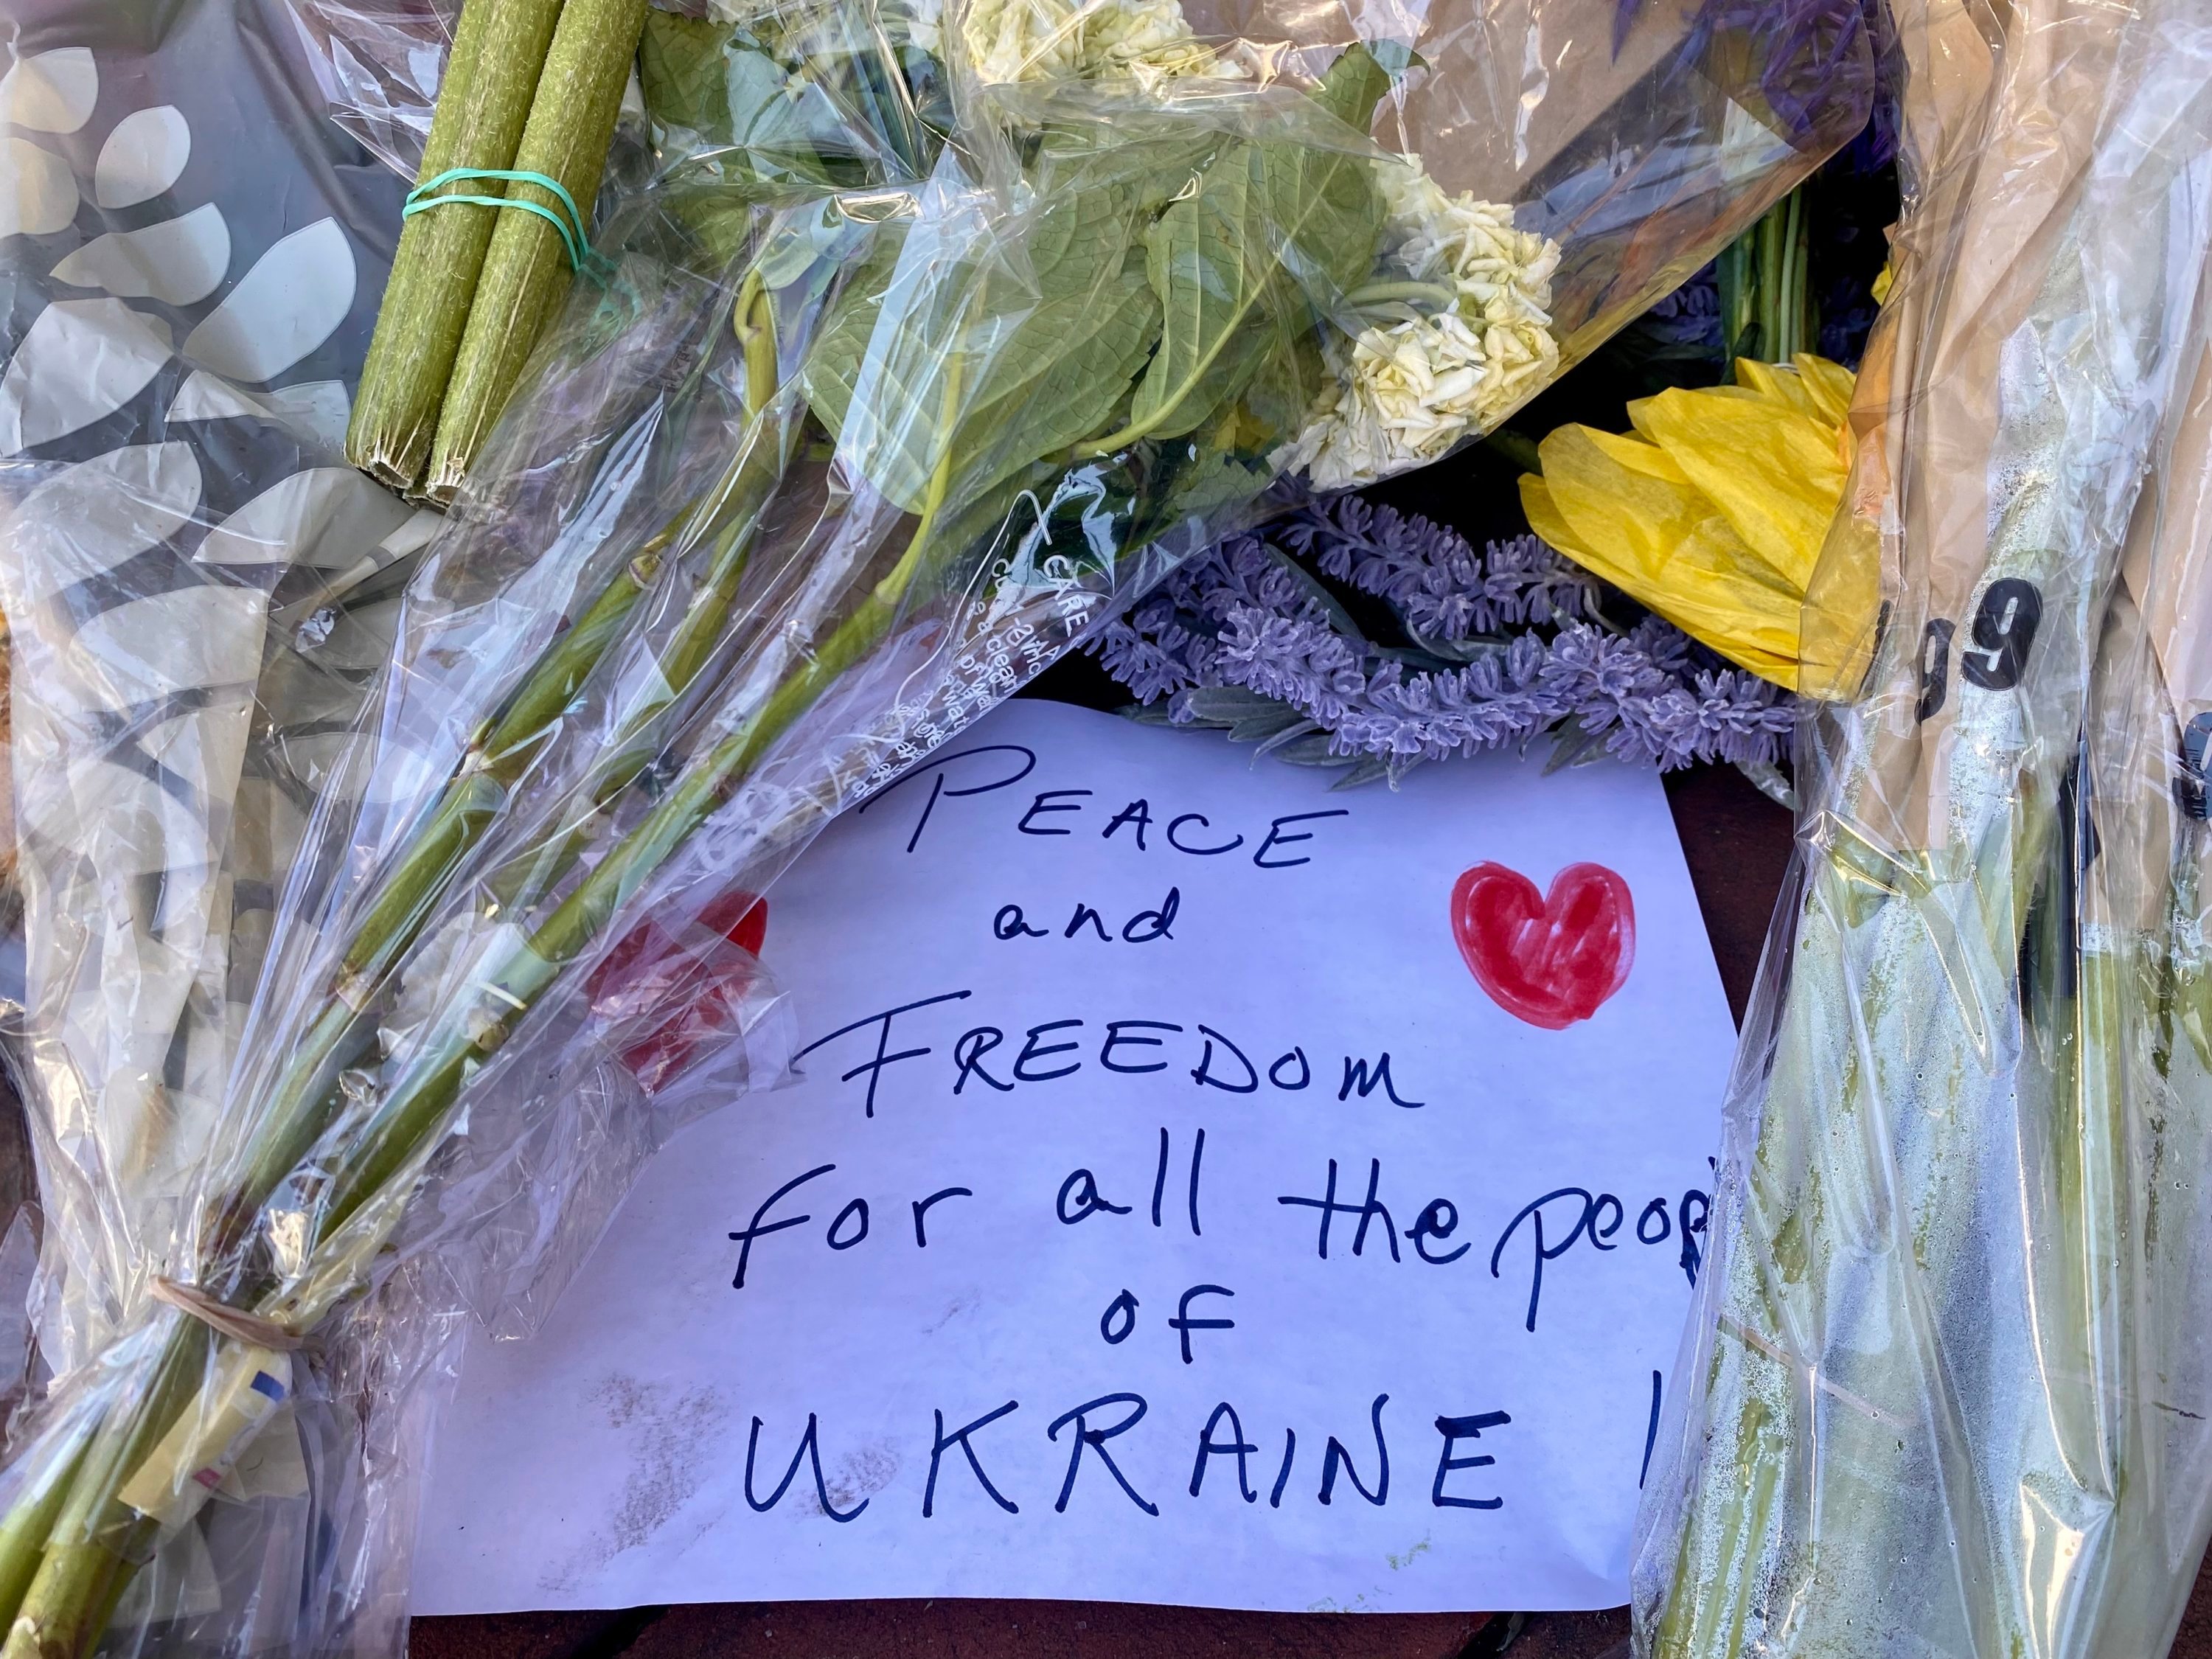 CARE
PEACE
and
FREEDOM
for all the peop
of
UKRAINE !
99